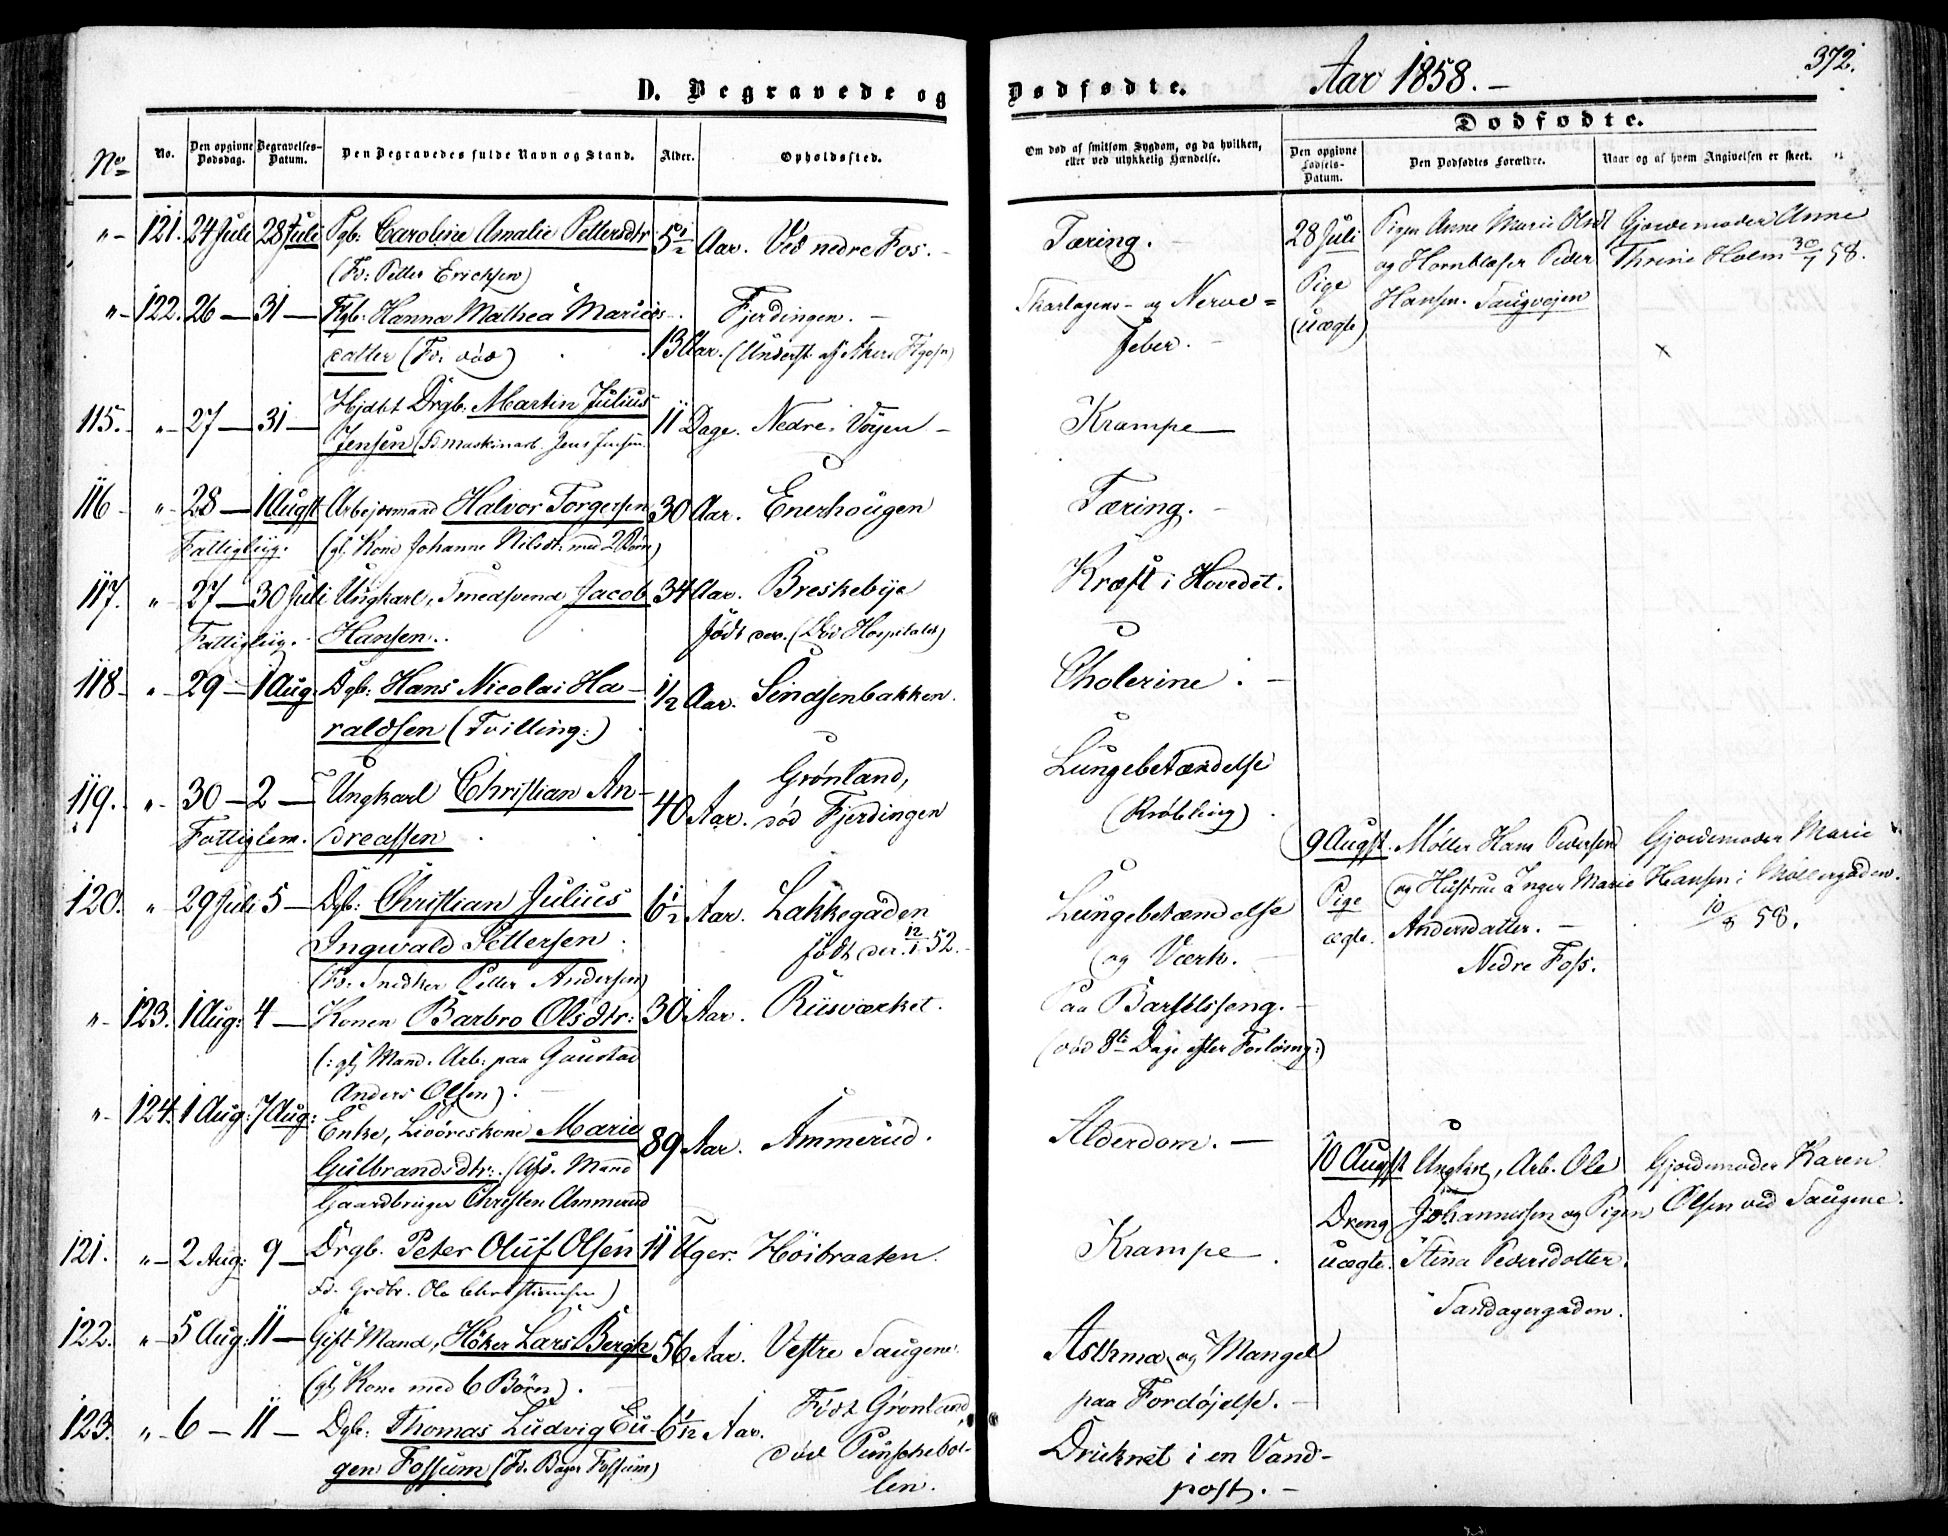 372.
D. Begravede og Dødfødte. Aar 1858. –
Dødfødte.
No
No.
Den opgivne Dødsdag.
Begravelses-Datum.
Den Begravedes fulde Navn og Stand.
Alder.
Opholdssted.
Om død af smitsom Sygdom, og da hvilken, eller ved ulykkelig Hændelse.
Den opgivne Fødsels-Datum.
Den Dødfødtes Forældre.
Naar og af hvem Angivelsen er skeet.
" – 121. 24 Juli 28 Juli Pgb: Caroline Amalie Pettersdtr 5½ Aar. Ved nedre Fos. – Tæring. –
(Fd: Petter Erichsen)
28 Juli Pigen Anne Marie Olsdt Gjordemoder Anne
og Hornblæser Peder Thrine Holm 30/7 58.
Pige Hansen. Saugvejen
(uægte)
" – 122. 26 – 31 – Pgb: Hanna Mathea Marie Fjerdingen. – Skarlagens- og Nerve=
datter (Fd: død) 13 Aar. (Underst. af Akers Fgdsn) feber. –
115. " 27 – 31 – Hjdbt Drgb: Martin Julius 11 Dage. Nedre Vöyen – Krampe –
Jensen (Fd. Maskinarb. Jens Jensen
116 " 28 – 1 Augst Arbejdsmand Halvor Torgersen 30 Aar. Enerhougen Tæring. –
Fattigliig. (glj Kone Johanne Nilsdt: med 2 Börn)
117. " 27 – 30 Juli Ungkarl, Smedsvend Jacob 34 Aar. Breskebye Kræft i Hovedet.
Fattigliig. Hansen. født der. (Död Hospitalet)
118 – " 29 – 1 Aug. Dgb: Hans Nicolai Ha- ½ Aar. Sinsenbakken. Cholerine. –
raldsen (Tvilling:)
119. " 30 – 2 – Ungkarl Christian An- 40 Aar. Grønland, Lungebetændelse
Fattiglem. dreassen död Fjerdingen
120. " 29 Juli 5 – Dgb: Christian Julius 6½ Aar. Lakkegaden Lungebetændelse
Ingwald Pettersen. født der. 12/1 52. – og Værk.
(Fd. Snedker Petter Andersen)
9 Augst. Møller Hans Pedersen Gjordemoder Marie
Pige og Hustrue Inger Marie Hansen i Møllergaden.
ægte. Andersdatter. – 10/8 58.
Nedre Foss.
" 123. 1 Aug: 4 – Konen Barbro Olsdtr: 30 Aar. Riisværket. Paa Barselseng. –
(: glj Mand. Arb: paa Gaustad (död 8te Dage efter Forløsng:)
Anders Olsen). –
" 124. 1 Aug: 7 Aug: Enke, Livöreskone Marie 89 Aar. Ammerud. Alderdom. –
Gulbrandsdtr: (Afd. Mand
Gaardbruger Christen Ammerud
10 Augst Ungkarl, Arb. Ole Gjordemoder Karen
Dreng Johannessen og Pigen Olsen ved Saugene.
uægte. Stina Pedersdotter.
Sandagergaden.
121. " 2 Aug: 9 – Drgb. Peter Oluf Olsen 11 Uger. Höibraaten. Krampe.
Fd. Grdbr. Ole Christiansen)
122. " 5 Aug: 11 – Gift Mand, Høker Lars Bergh 56 Aar. Vestre Saugene. Asthma og Mangel
(glj Kone med 6 Börn). – paa Fordøjelse. –
123. " 6 – 11 – Dgb: Thomas Ludvig Eu- 6 1/12 Aar. Födt Grönland, Druknet i en Vand-
gen Fossum (Fd. Bager Fossum) död Punschebol- post. –
len.